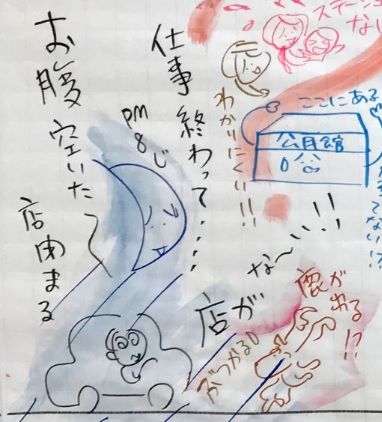 ステージ
なし
ここにある
公民館
わかりにくい!!
仕事終わって・・・・
pm
8じ
お腹空いた〜
店閉まる
店が
な〜い!!
鹿が
おる!?
ぶつかる